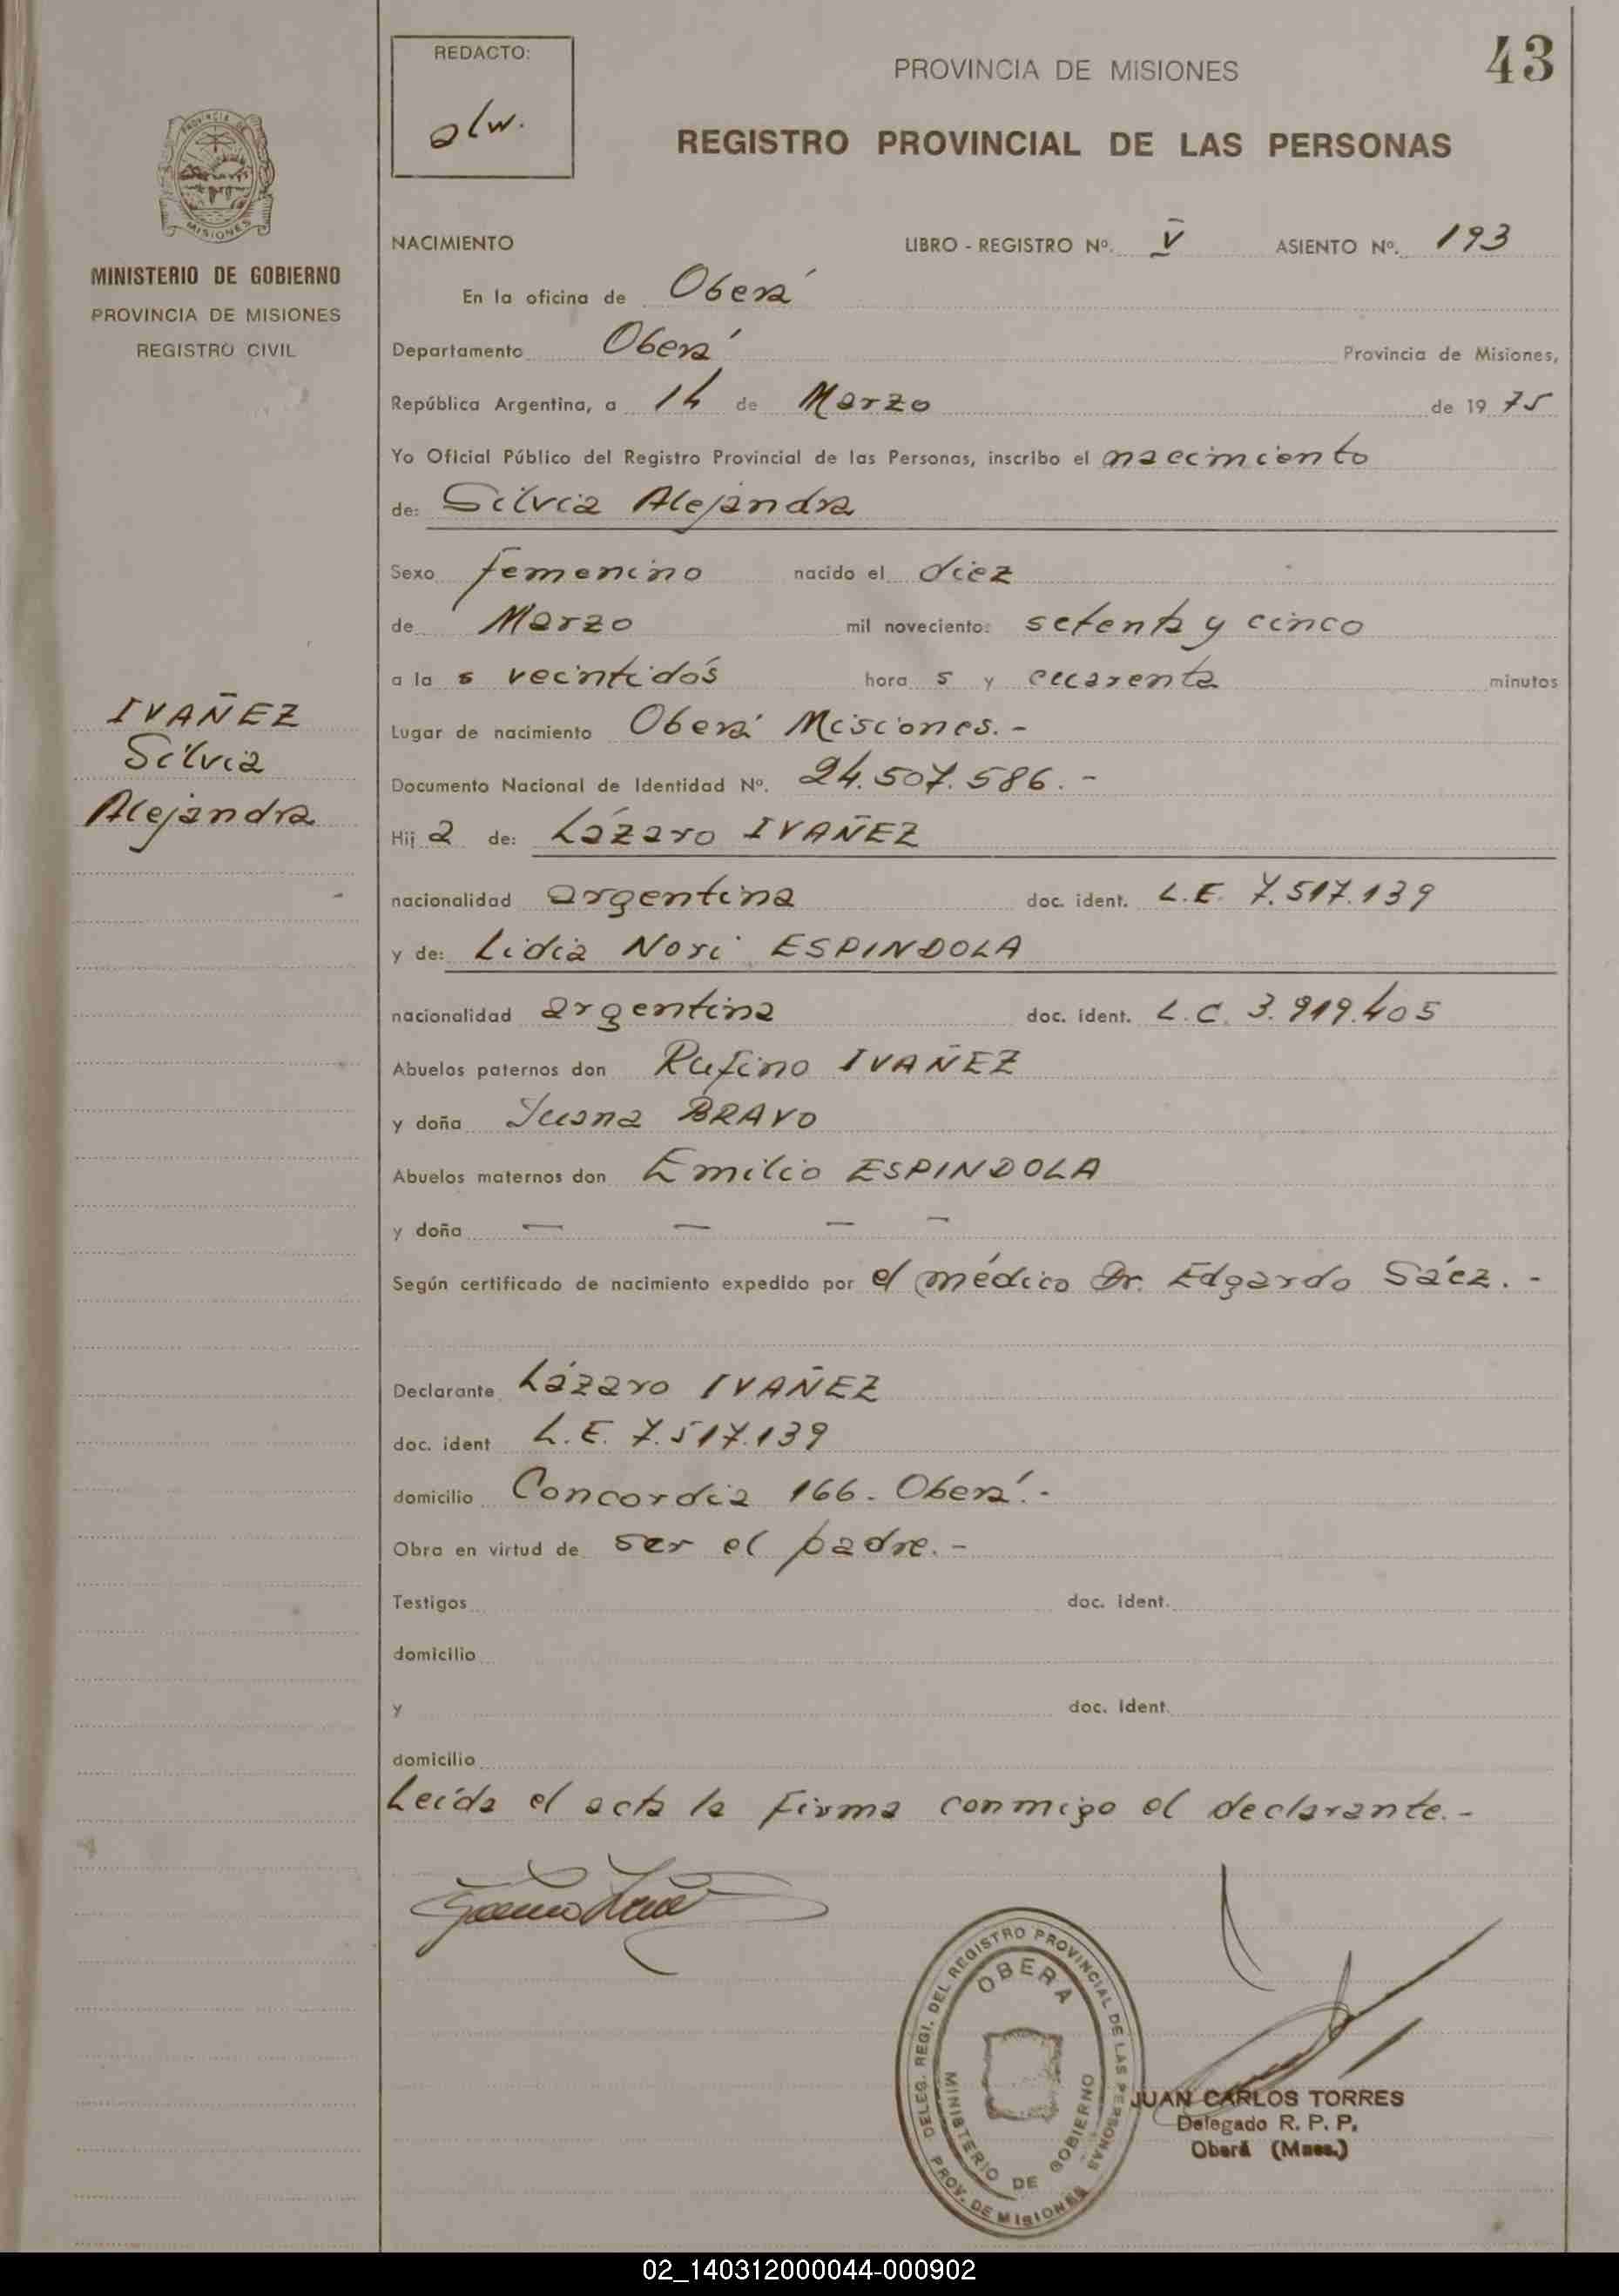 43
REDACTO:
alw.
PROVINCIA DE MISIONES
REGISTRO PROVINCIAL DE LAS PERSONAS
PROVINCIA DE
MISIONES
MINISTERIO DE GOBIERNO
PROVINCIA DE MISIONES
REGISTRO CIVIL
IVAÑEZ
Silvia
Alejandra
NACIMIENTO LIBRO - REGISTRO Nº. V ASIENTO Nº. 193
En la oficina de Oberá
Departamento Oberá Provincia de Misiones,
República Argentina, a 14 de Marzo de 19 75
Yo Oficial Público del Registro Provincial de las Personas, inscribo el nacimiento
de: Silvia Alejandra
Sexo femenino nacido el diez
de Marzo mil noveciento: setenta y cinco
a la s veintidós hora s y cuarenta minutos
Lugar de nacimiento Oberá Misiones. -
Documento Nacional de Identidad Nº. 24.507.586. -
Hij a de: Lázaro IVAÑEZ
nacionalidad argentina doc. ident. L.E. 7.517.139
y de: Lidia Nori ESPINDOLA
nacionalidad argentina doc. ident. L.C. 3.919.405
Abuelos paternos don Rufino IVAÑEZ
y doña Juana BRAVO
Abuelos maternos don Emilio ESPINDOLA
y doña — — — —
Según certificado de nacimiento expedido por el médico Dr. Edgardo Sáez. -
Declarante Lázaro IVAÑEZ
doc. ident L.E. 7.517.139
domicilio Concordia 166. Oberá. -
Obra en virtud de ser el padre. -
Testigos doc. ident.
domicilio
y doc. ident.
domicilio
Leída el acta la firma conmigo el declarante. -
DELEG. REGI. DEL REGISTRO PROVINCIAL DE LAS PERSONAS
PROV. DE MISIONES
OBERA
MINISTERIO DE GOBIERNO
JUAN CARLOS TORRES
Delegado R. P. P.
Oberá (Mnes.)
02_140312000044-000902